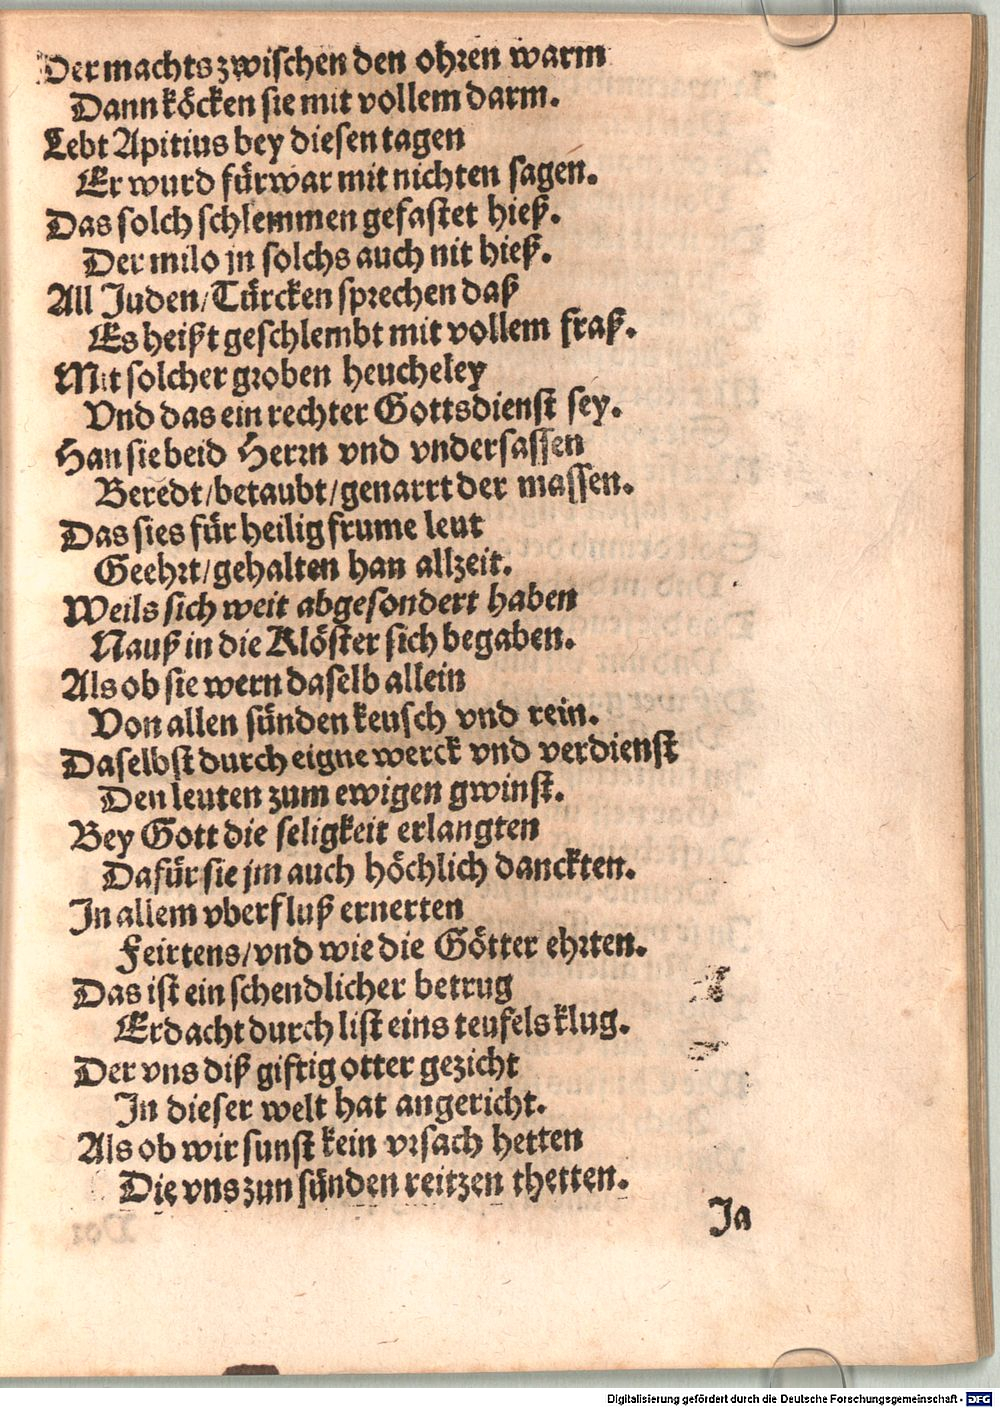 Der machts zwischen den ohren warm
Dann köcken sie mit vollem darm.
Lebt Apitius bey diesen tagen
Er wurd fürwar mit nichten sagen.
Das solch schlemmen gefastet hieß.
Der milo jn solchs auch nit hieß.
All Juden/Türcken sprechen daß
Es heißt geschlembt mit vollem fraß.
Mit solcher groben heucheley
Vnd das ein rechter Gottsdienst sey.
Han sie beid Herrn vnd vndersassen
Beredt/betaubt/genarrt der massen.
Das sies für heilig frume leut
Geehrt/gehalten han allzeit.
Weils sich weit abgesondert haben
Nauß in die Klöster sich begaben.
Als ob sie wern daselb allein
Von allen sünden keusch vnd rein.
Daselbst durch eigne werck vnd verdienst
Den leuten zum ewigen gwinst.
Bey Gott die seligkeit erlangten
Dafür sie jm auch höchlich danckten.
In allem vberfluß ernerten
Feirtens/vnd wie die Götter ehrten.
Das ist ein schendlicher betrug
Erdacht durch list eins teufels klug.
Der vns diß giftig otter gezicht
In dieser welt hat angericht.
Als ob wir sunst kein vrsach hetten
Die vns zun sünden reitzen thetten.
Ja
Digitalisierung gefördert durch die Deutsche Forschungsgemeinschaft - DFG